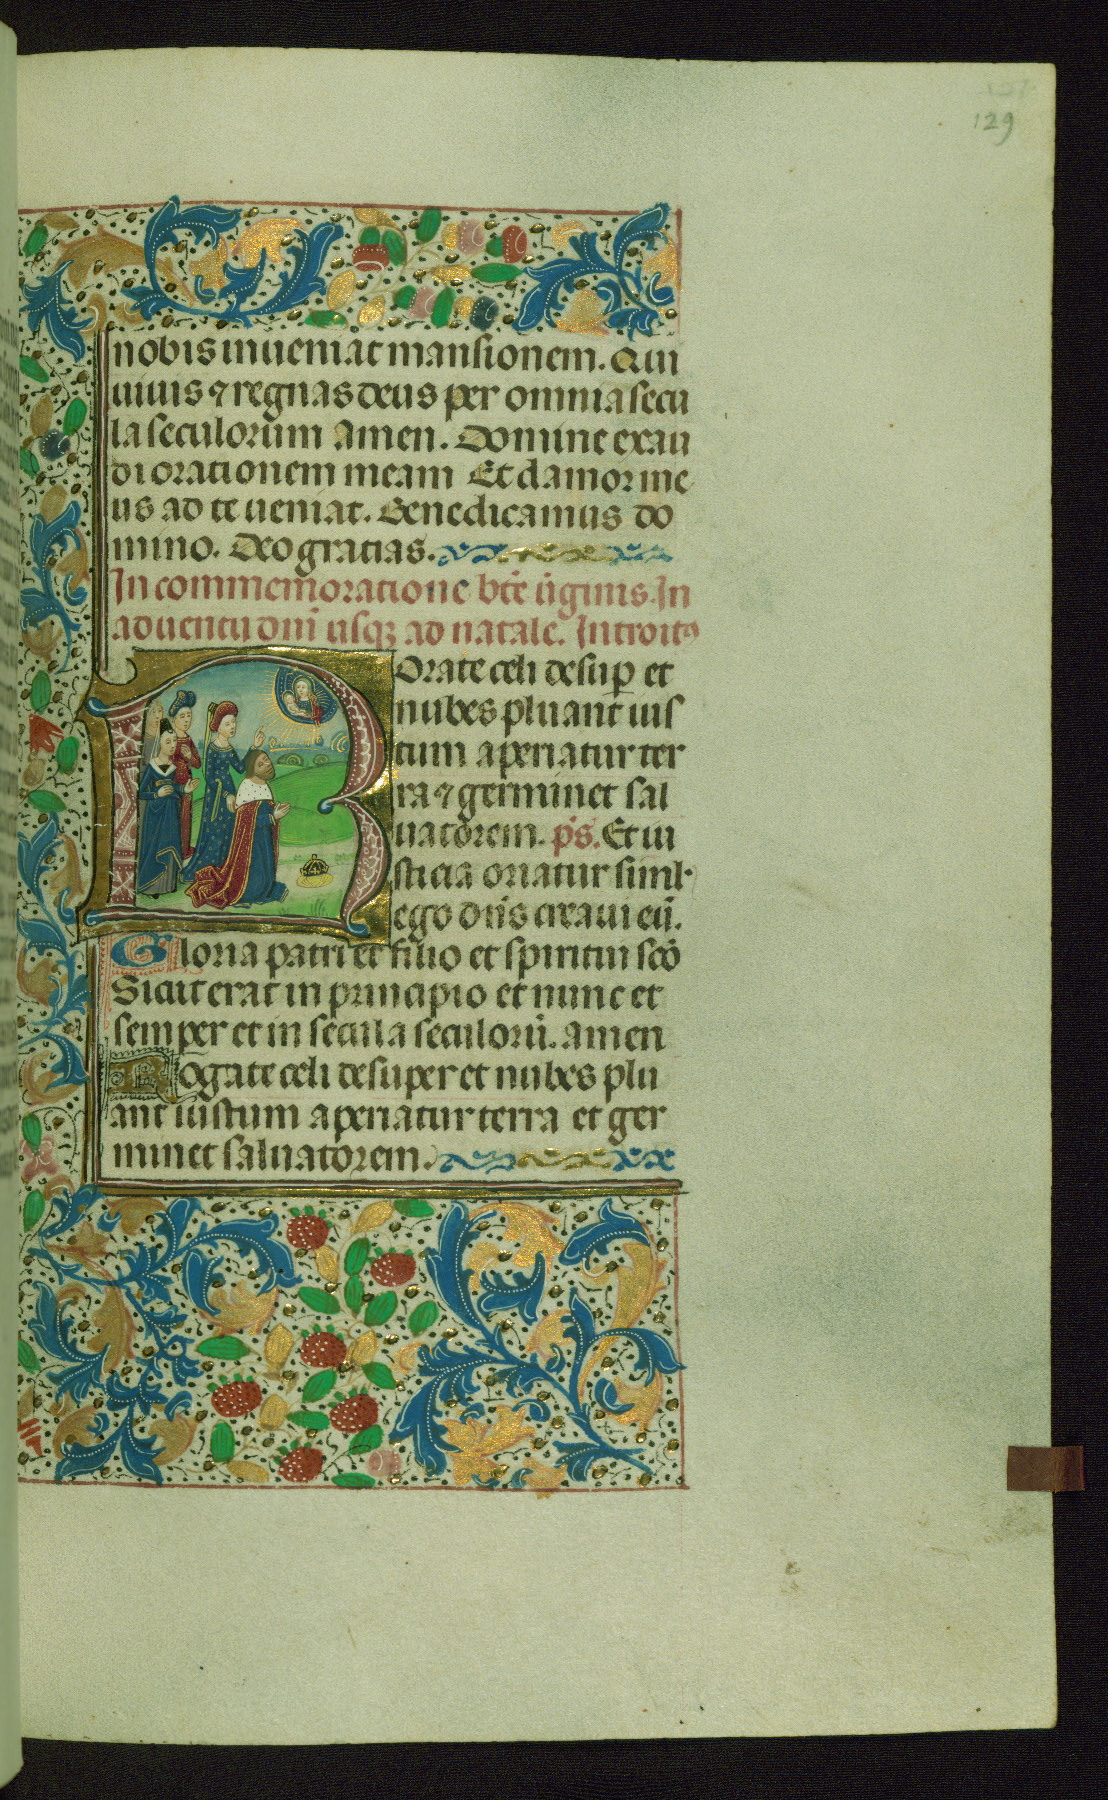 129
nobis inueniat mansionem. Qui
uiuis ⁊ regnas deus per omnia secu
la seculorum amen. Domine exau
di orationem meam Et clamor me
us ad te ueniat. Benedicamus do
mino. Deo gracias.
In commemoratione bt̄e ūginis. In
aduentu dn̄i usqꝫ ad natale. Introitꝰ
Rorate celi desuꝑ et
nubes pluant ius
tum aperiatur ter
ra ⁊ germinet sal
uatorem. ps̄. Et iu
sticia oriatur simlˑ
ego dn̄s creaui eū.
Gloria patri et filio et spiritui sc̄o
Sicut erat in principio et nunc et
semper et in secula seculorū. amen
Rogate celi desuper et nubes plu
ant iustum aperiatur terra et ger
minet saluatorem.